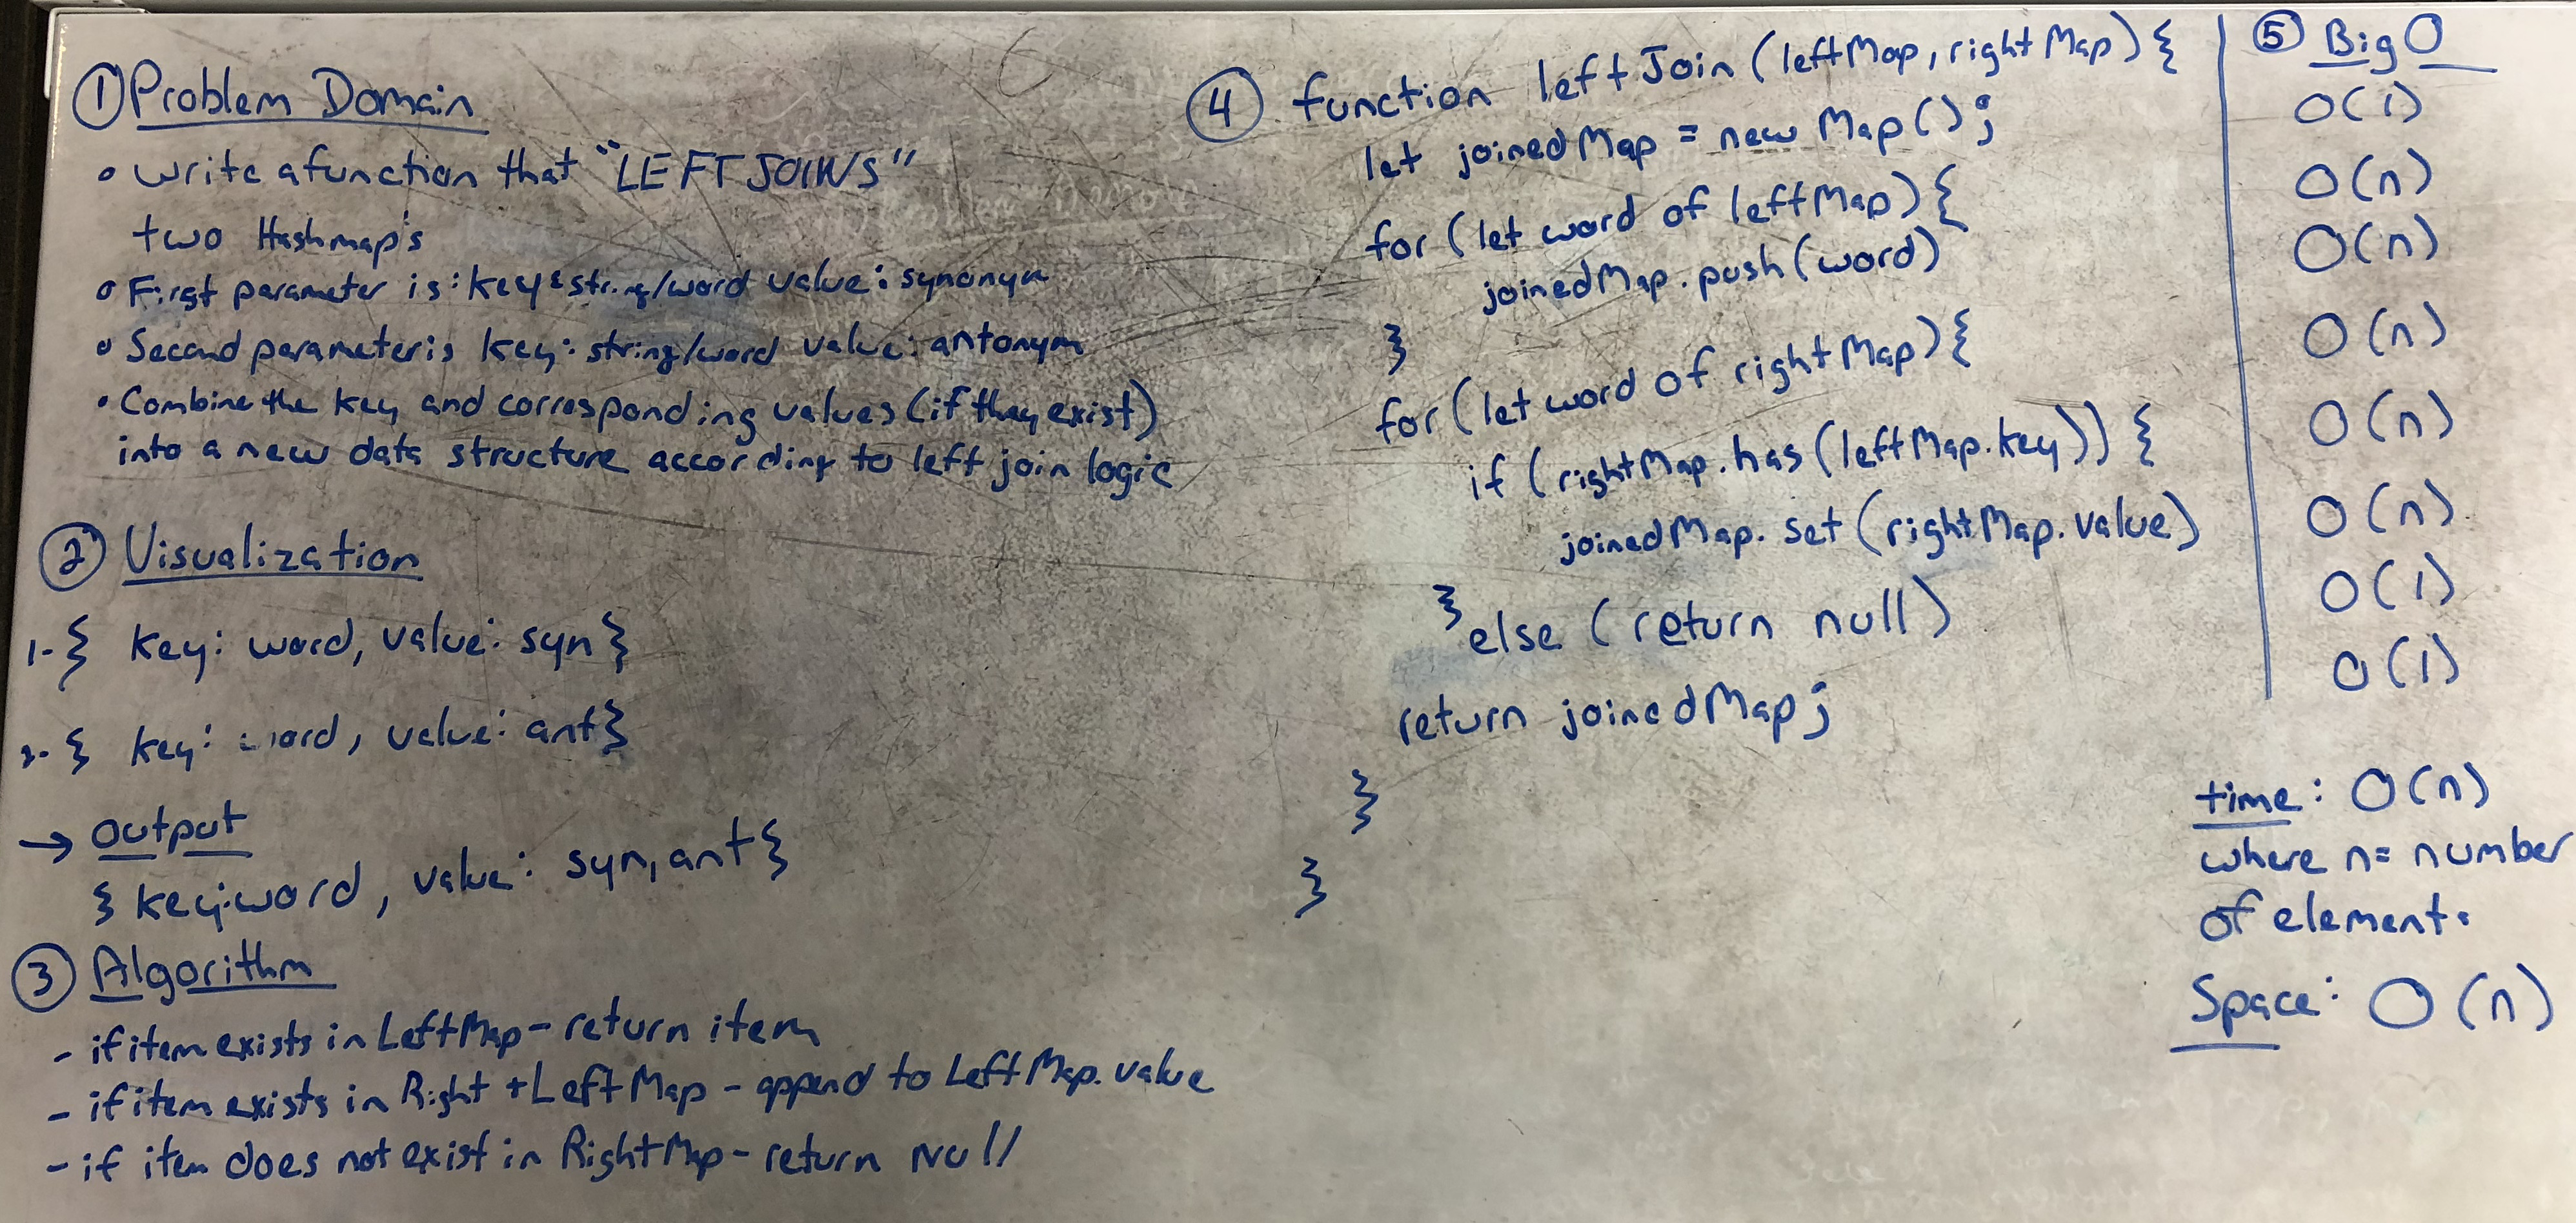 ① Problem Domain
• Write a function that "LEFT JOINS"
two Hashmap's
• First parameter is: key: string/word value: synonym
• Second parameter is key: string/word value: antonym
• Combine the key and corresponding values (if they exist)
into a new data structure according to left join logic
② Visualization
1- { key: word, value: syn }
2- { key: word, value: ant }
→ Output
{ key: word, value: syn, ant }
③ Algorithm
- if item exists in LeftMap - return item
- if item exists in Right + Left Map - append to LeftMap.value
- if item does not exist in RightMap - return Null
④ function leftJoin (leftMap, rightMap) {
let joinedMap = new Map();
for (let word of leftMap) {
joinedMap.push(word)
}
for (let word of rightMap) {
if (rightMap.has(leftMap.key)) {
joinedMap.set(rightMap.value)
} else (return null)
return joinedMap;
}
}
⑤ Big O
O(1)
O(n)
O(n)
O(n)
O(n)
O(n)
O(1)
O(1)
time: O(n)
where n= number
of elements
Space: O(n)